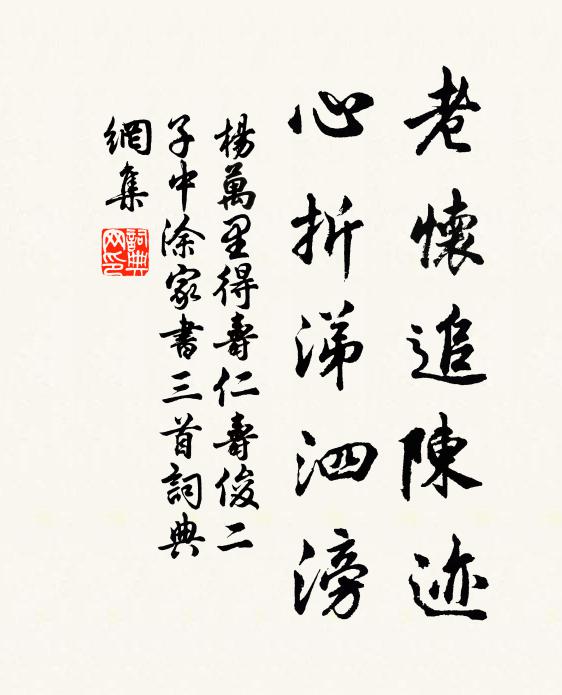 老懷追陳迹
心折涕泗滂
楊萬里得壽仁壽俊二
子中涂家書三首詞典
網集
詞典
网印